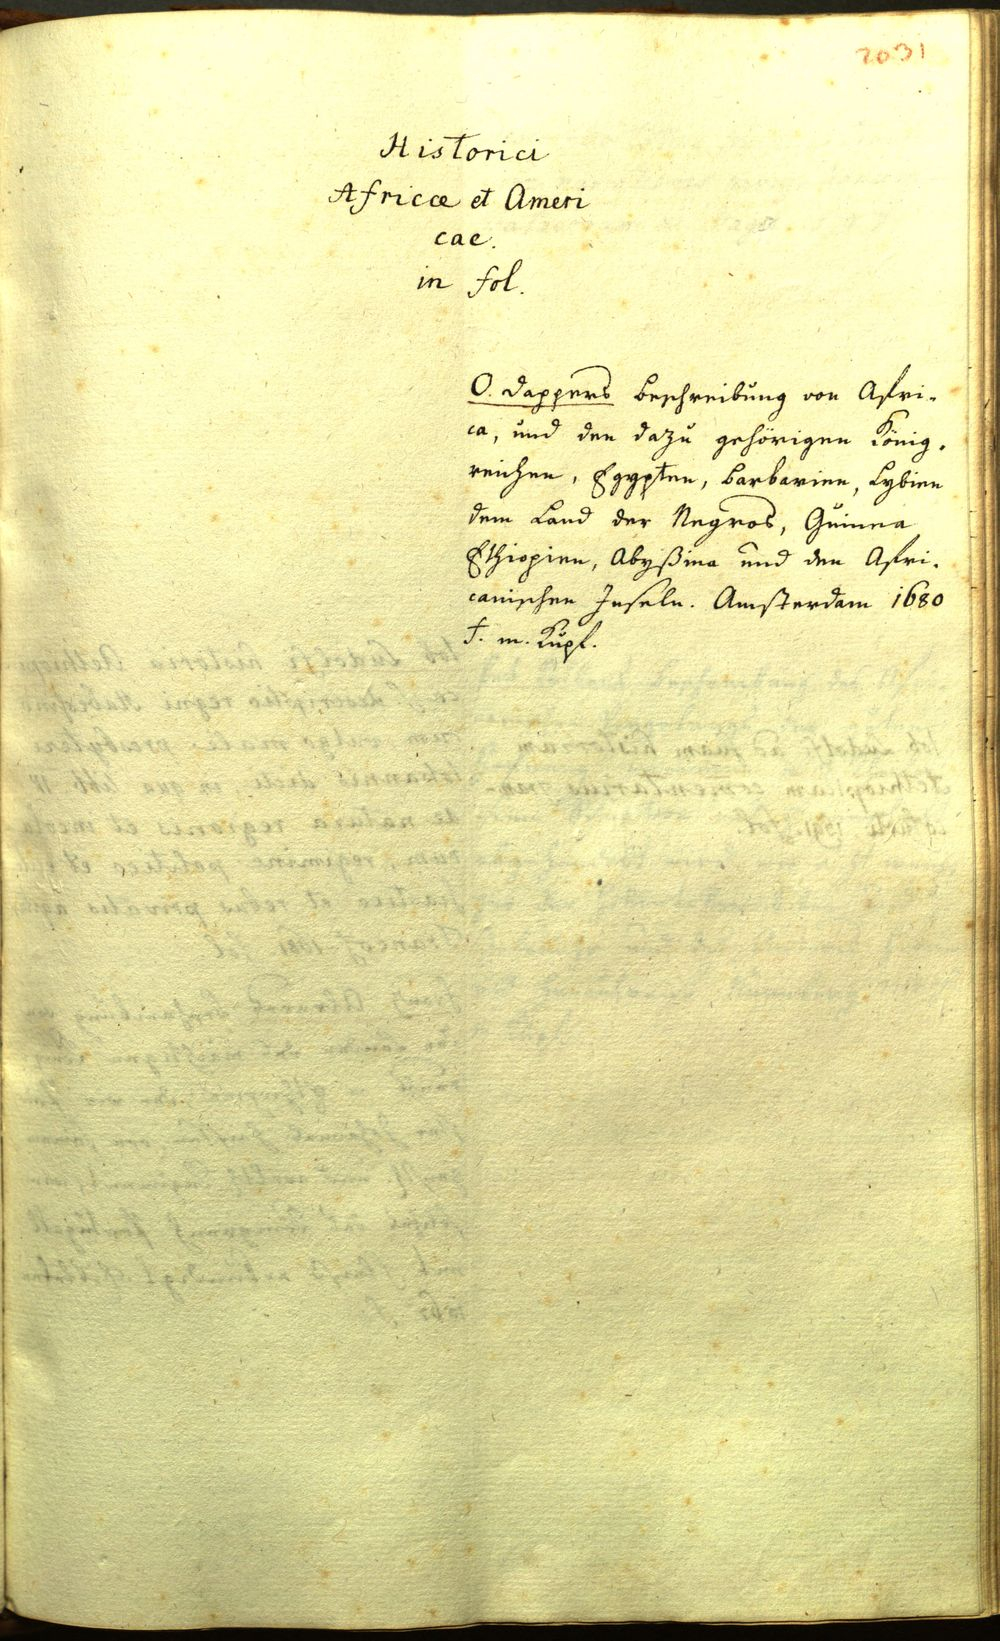 2031
Historici
Africæ et Ameri
cae.
in fol.
O. Dappers Beschreibung von Afri-
ca, und den dazu gehörigen König-
reichen, Egypten, Barbarien, Lybien
dem Land der Negros, Guinea
Ethiopien, Abyßina und den Afri-
canischen Inseln. Amsterdam 1680
f. m. Kupf.